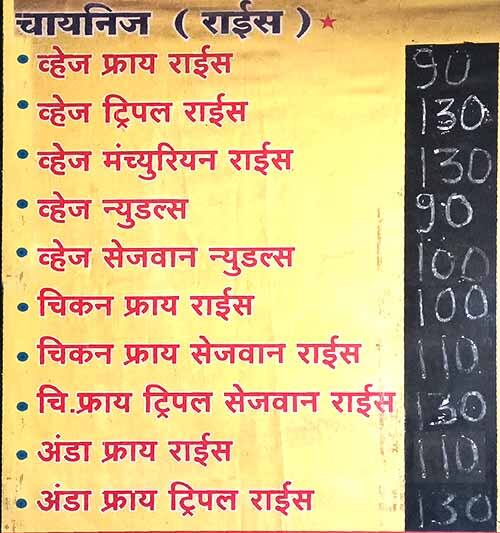 चायनिज ( राईस ) ★
• व्हेज फ्राय राईस 90
• व्हेज ट्रिपल राईस 130
• व्हेज मंच्युरियन राईस 130
• व्हेज न्युडल्स 90
• व्हेज सेजवान न्युडल्स 100
• चिकन फ्राय राईस 100
• चिकन फ्राय सेजवान राईस 110
• चि.फ्राय ट्रिपल सेजवान राईस 130
• अंडा फ्राय राईस 110
• अंडा फ्राय ट्रिपल राईस 130